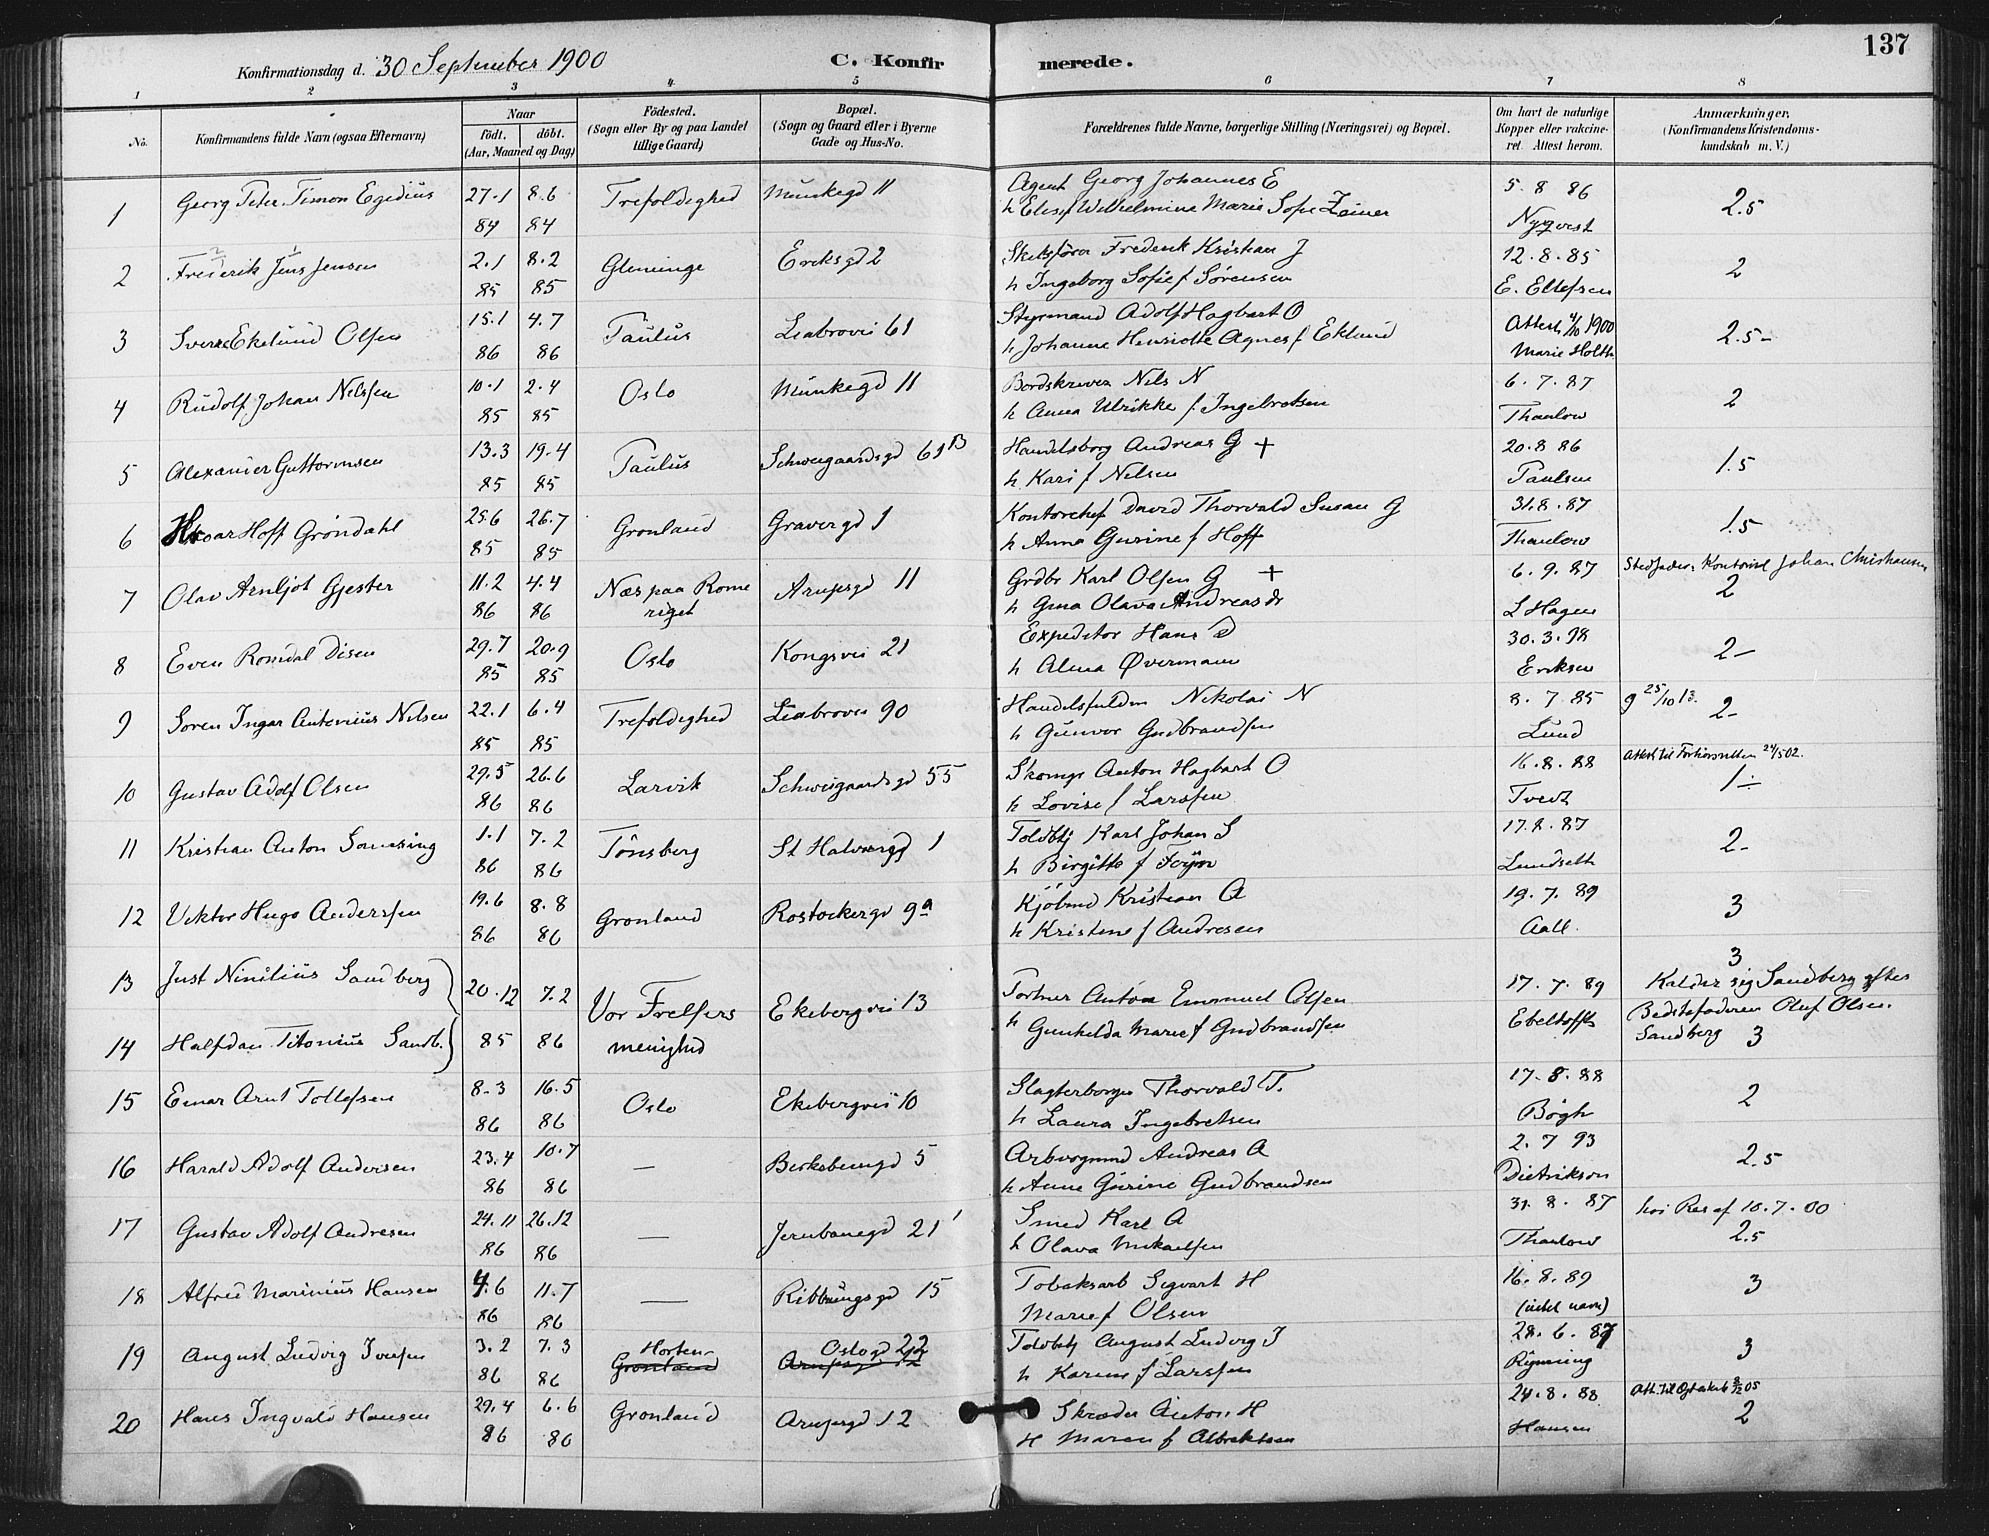 137
Konfirmationsdag d. 30 September 1900 C. Konfirmerede.
1 2 3 4 5 6 7 8
No. Konfirmandens fulde Navn (ogsaa Efternavn) Naar født. døbt. (Aar, Maaned og Dag) Födested. (Sogn eller By og paa Landet tillige Gaard) Bopæl. (Sogn og Gaard eller i Byerne Gade og Hus-No. Forældrenes fulde Navne, borgerlige Stilling (Næringsvei) og Bopæl. Om havt de naturlige Kopper eller vakcineret. Attest herom. Anmærkninger. (Konfirmandens Kristendomskundskab m. V.)
1 Georg Peter Timon Egedius 27.1 8.6 Trefoldighed Munkegd 11 Agent Georg Johannes E 5.8 86 2.5
84 84 h Elise f Wilhelmine Marie Sofie Zeiner Nyqvist
2 Frederik Jens Jensen 2.1 8.2 Gleminge Eriksgd 2 Skibsfører Frederik Kristian J 12.8.85 2
85 85 h Ingeborg Sofie f Sörensen E. Ellefsen
3 Sverre Ekelund Olsen 15.1 4.7 Paulus Liabrovei 61 Styrmand Adolf Hagbart O Attest 4/10 1900 2.5-
86 86 h Johanne Henriette Agnes f Eklund Marie Holth
4 Rudolf Johan Nilssen 10.1 2.4 Oslo Munkegd 11 Bordskriver Nils N 6.7.87 2
85 85 h Anna Ulrikke f Ingebretsen Thaulow
5 Alexander Guttormsen 13.3 19.4 Paulus Schweigaardsgd 61 B Handelsborg Andreas G + 20.8 86 1.5
85 85 h. Kari f Nilsen Paulsen
6 Hroar Hoff Gröndahl 25.6 26.7 Grønland Gravergd 1 Kontorchef David Thorvald Susan G 31.8.87 1.5
85 85 h Anna Gurine f Hoff Thaulow
7 Olav Arnljot Gjester 11.2 4.4 Næs paa Rome Arupsgd 11 Grdbr Karl Olsen G + 6.9.87 Stedfader: Kontorist Johan Christiansen
86 86 riget h Gina Olava Andreasdr L Hagen 2
8 Even Romdal Disen 29.7 20.9 Oslo Kongsvei 21 Expeditor Hans D 30.3.98 2-
85 85 h Alma Øvermann Eriksen
9 Soren Ingar Antonius Nilsen 22.1 6.4 Trefoldighed Liabrovei 90 Handelsfuldm Nikolai N 8.7.85 g 25/10 13. 2-
85 85 h Gunvor Gudbrandsen Lund
10 Gustav Adolf Olsen 29.5 26.6 Larvik Schweigaardsgd 55 Skomgr Anton Hagbart O 16.8.88 24/5 02.
86 86 h Lovise f Larssen Tvedt 1÷
11 Kristian Anton Somesing 1.1 7.2 Tönsberg St Halvorsgd 1 Toldbtj Karl Johan S 17.8.87 2-
86 86 h Birgitte f Föyn Lundseth
12 Viktor Hugo Anderssen 19.6 8.8 Grønland Rostockergd 9a Kjöbmd Kristian A 19.7.89 3
86 86 h Kristine f Andresen Aall.
13 Just Ninilius Sandberg 20.12 7.2 Vor Frelsers Ekebergvei 13 Portner Anton Emanuel Olsen 17.7.89 3 Kalder sig Sandberg efter
14 Halfdan Titonius Sandb. 85 86 menighed h Gunhilda Marie f Gudbrandsen Ebeltofft Bedstefaderen Oluf Olsen Sandberg 3
15 Einar Arnt Tollefsen 8.3 16.5 Oslo Ekebergvei 10 Slagterborger Thorvald T. 17.8.88 2
86 86 h Laura Ingebretsen Bögh
16 Harald Adolf Andersen 23.4 10.7 — 5 Andreas A 2.7 93 2.5
86 86 h Anne Gurine Gudbrandsen Dietrikson
17 Gustav Adolf Andresen 24.11 26.12 — Jernbanegd 21 Smed Karl A 31.8.87 kgl Res af 10.7.00
86 86 h Olava Mikaelsen Thaulow 2.5
18 Alfred Marinius Hansen 4.6 11.7 — Ribbungsgd 15 Tobaksarb Sigvart H 16.8.89 3
86 86 Marie f Olsen (intet navn)
19 August Ludvig Iversen 3.2 7.3 Horten Grønland Oslogd 22 Arupsgd 12 Toldbtj August Ludvig I 28.6.87 3
86 86 h Karine f Larssen Rynning
20 Hans Ingvald Hansen 29.4 6.6 Grønland Arupsgd 12 Skræder Anton H 24.8.88 2
86 86 H Maren f Albrektsen Hansen